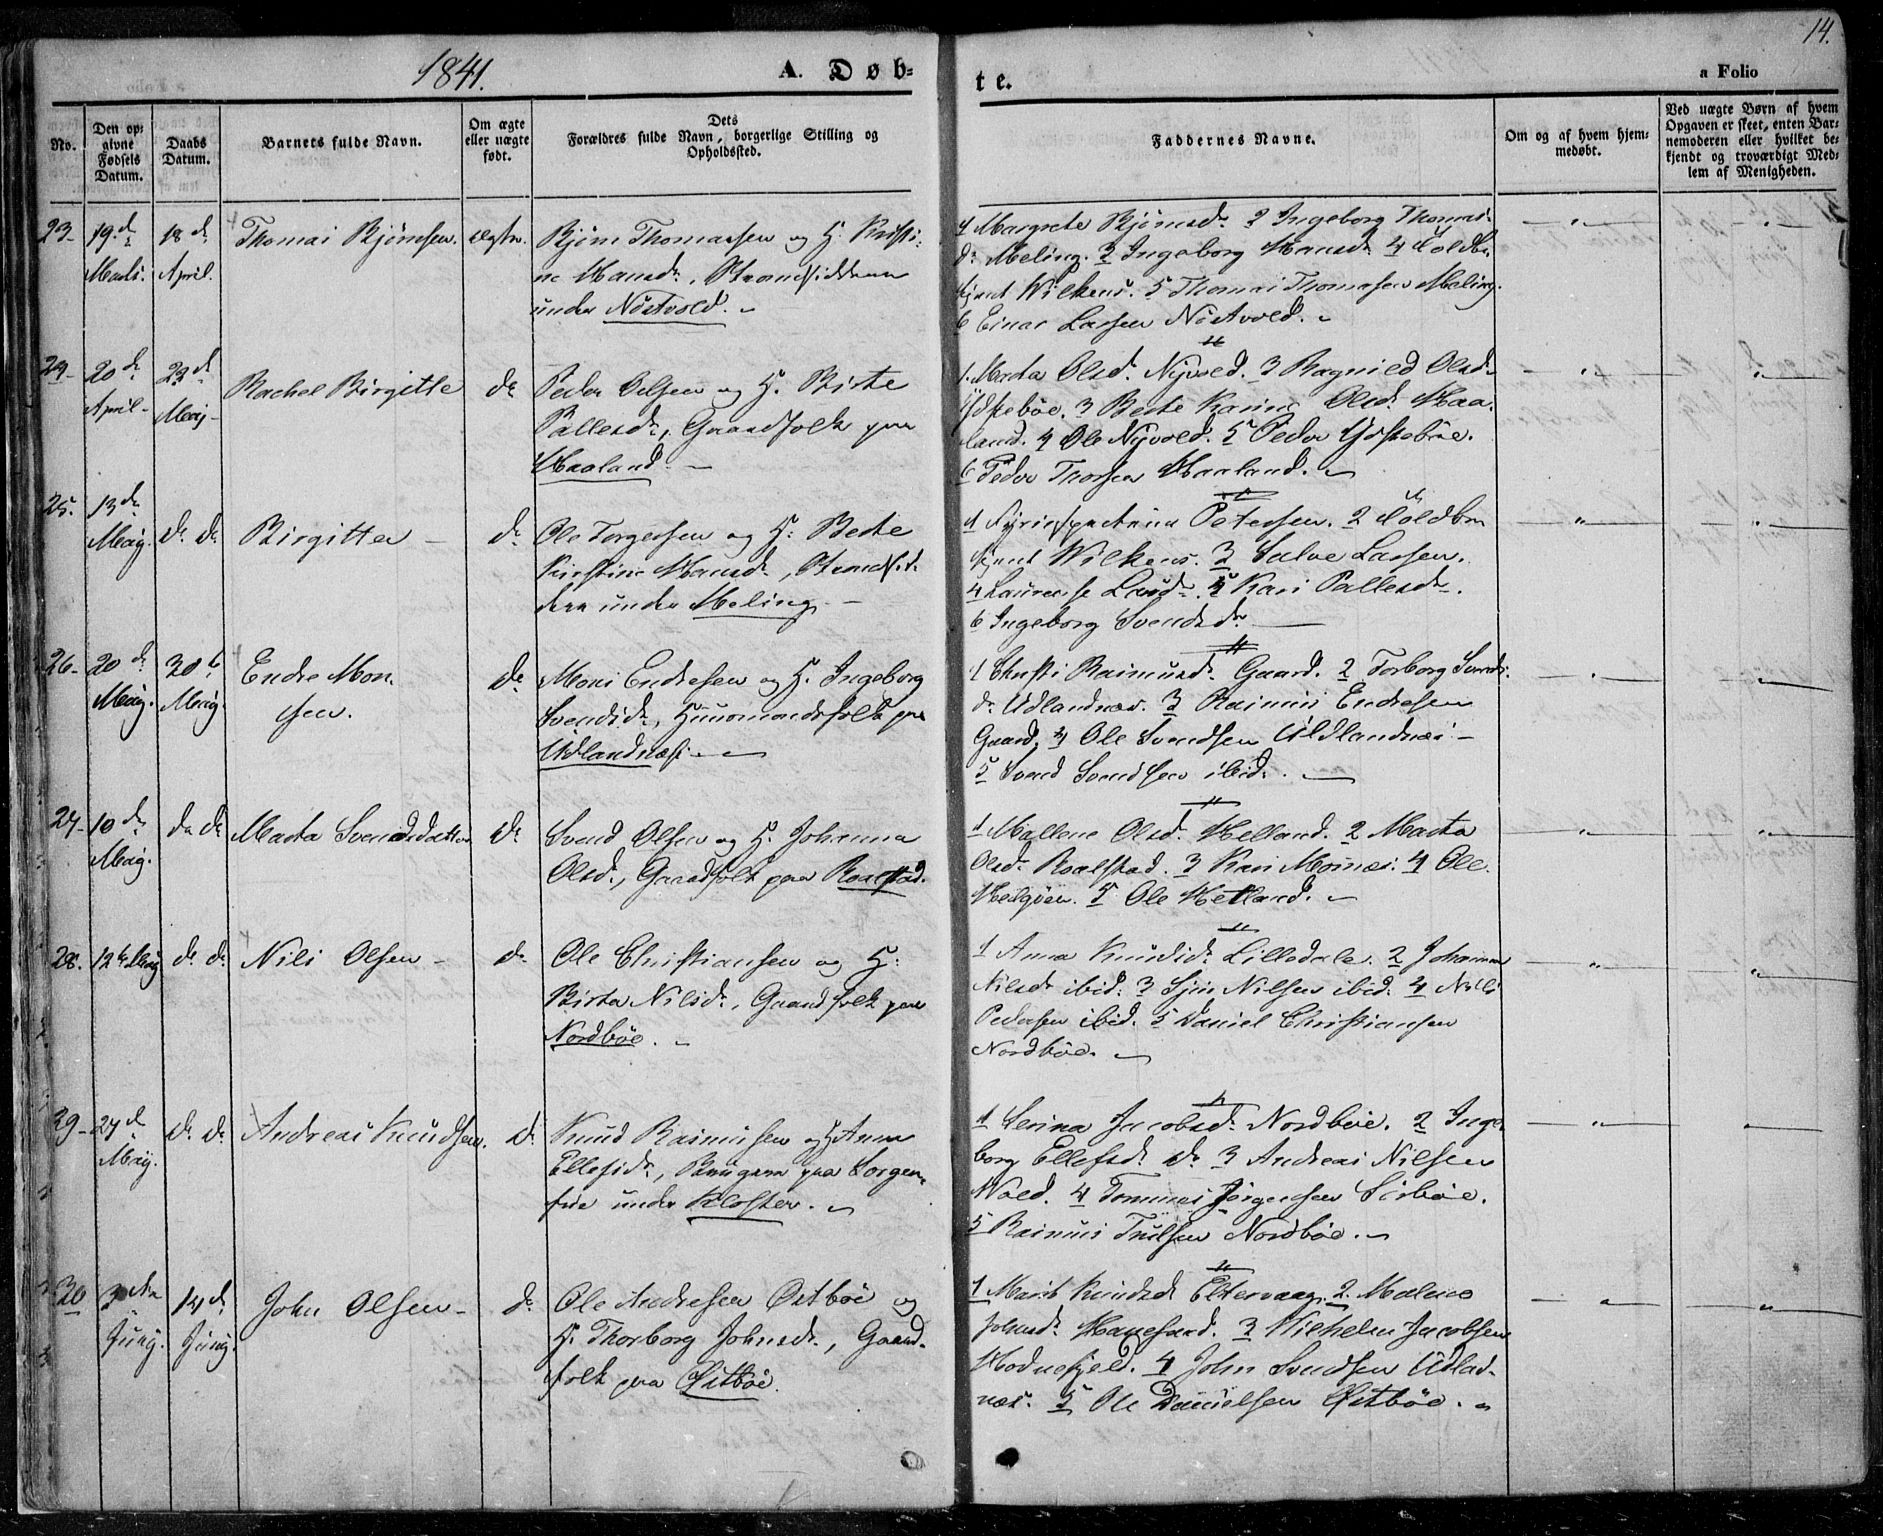 1841.
A. Døb=
te.
a Folio
14.
No.
Den op=
givne
Fødsels
Datum.
Daabs
Datum.
Barnets fulde Navn.
Om ægte
eller uægte
født.
Dets
Forældres fulde Navn, borgerlige Stilling og
Opholdssted.
Faddernes Navne.
Om og af hvem hjem=
medøbt.
Ved uægte Børn af hvem
Opgaven er skeet, enten Bar=
nemoderen eller hvilket be=
kjendt og troværdigt Med=
lem af Menigheden.
23-
19.d.
Marts.
18 d.
April.
Thomas Bjørnsen.
Bjørn Thomassen og H. Kristi-
ne Hansd.,
under Nöstvold.
1 Margrete Bjørnsd. 2 Ingeborg Thomas-
d. Meling. 3 Ingeborg Hansd. 4
Wilkens. 5 Thomas Thomasen Meling.
6 Einar Larsen Nöstvold.
24-
20 d.
April-
23 d.
Maij-
Rachel Birgitte
do
Peder Olsen og H. Birte
Pallesd., Gaardfolk paa
Haaland.
1. Marta Olsd. Nyvold. 2 Ragnild Olsd.
3 Berte Karine Olsd. Haa-
land. 4 Ole Nyvold. 5 Peder
6 Peder Thorsen Haaland.
25.
13 d.
Maij.
do do
Birgitta -
do
Ole Torgersen og H. Berte
Kirstine Hansd., Strandsid-
dere under Meling. -
1 Petersen. 2 Toldbe-
tjent Wilkens. 3 Salve Larsen.
4 5 Kari Pallesd.
6 Ingeborg Svendsd.
26-
20 d.
Maij.
30 t
Maij.
Endre Mon-
sen.
do
Mons Endresen og H. Ingeborg
Svendsd., Huusmandsfolk paa
Udlandnæs.
1 Christi Rasmusd. Gaard. 2 Torborg Svends-
d. Udlandnæs. 3 Rasmus Endresen
Gaard. 4 Ole Svendsen Udlandnæs-
5 Svend Svendsen ibid.
27-
10 d.
Maij.
do do
Marta Svendsdatter
do
Svend Olsen og H. Johanna
Olsd., Gaardfolk paa Roalstad.
1 Mallene Olsd. Helland. 2 Marta
Olsd. Roalstad. 3 Kari 4 Ole
5 Ole Hetland.
28.
12te Maij
do do
Nils Olsen -
do
Ole Christiansen og H.
Birta Nilsd., Gaardfolk paa
Nordböe.
1 Anna Knudsd. Lilledale. 2 Johanna
Nilsd. ibid: 3 Nilsen ibid: 4 Nils
Pedersen ibid. 5 Daniel Christiansen
Nordböe.
29-
27 d
Maij.
do do
Andreas Knudsen.
d.
Knud Rasmusen og H Anna
Ellefsd., Brugere paa Sorgen-
frie under Kloster.
1 Serina Jacobsd. Nordböe. 2 Inge-
borg Ellefsd. do 3 Andreas Nilsen
Wold. 4 Tommes Jörgensen Sörböe.
5 Rasmus Nordböe.
30
3
Junij.
14 d.
Junij.
John Olsen-
do
Ole Andresen Østböe og
H. Thorborg Johnsd., Gaard-
folk paa Østböe.
1 Marit Knudsd Eltervaag. 2. Malene
Johnsd. 3 Vilhelm Jacobsen
Hodnefjeld. 4 John Svendsen Udland-
næs. 5 Ole Danielsen Østböe.